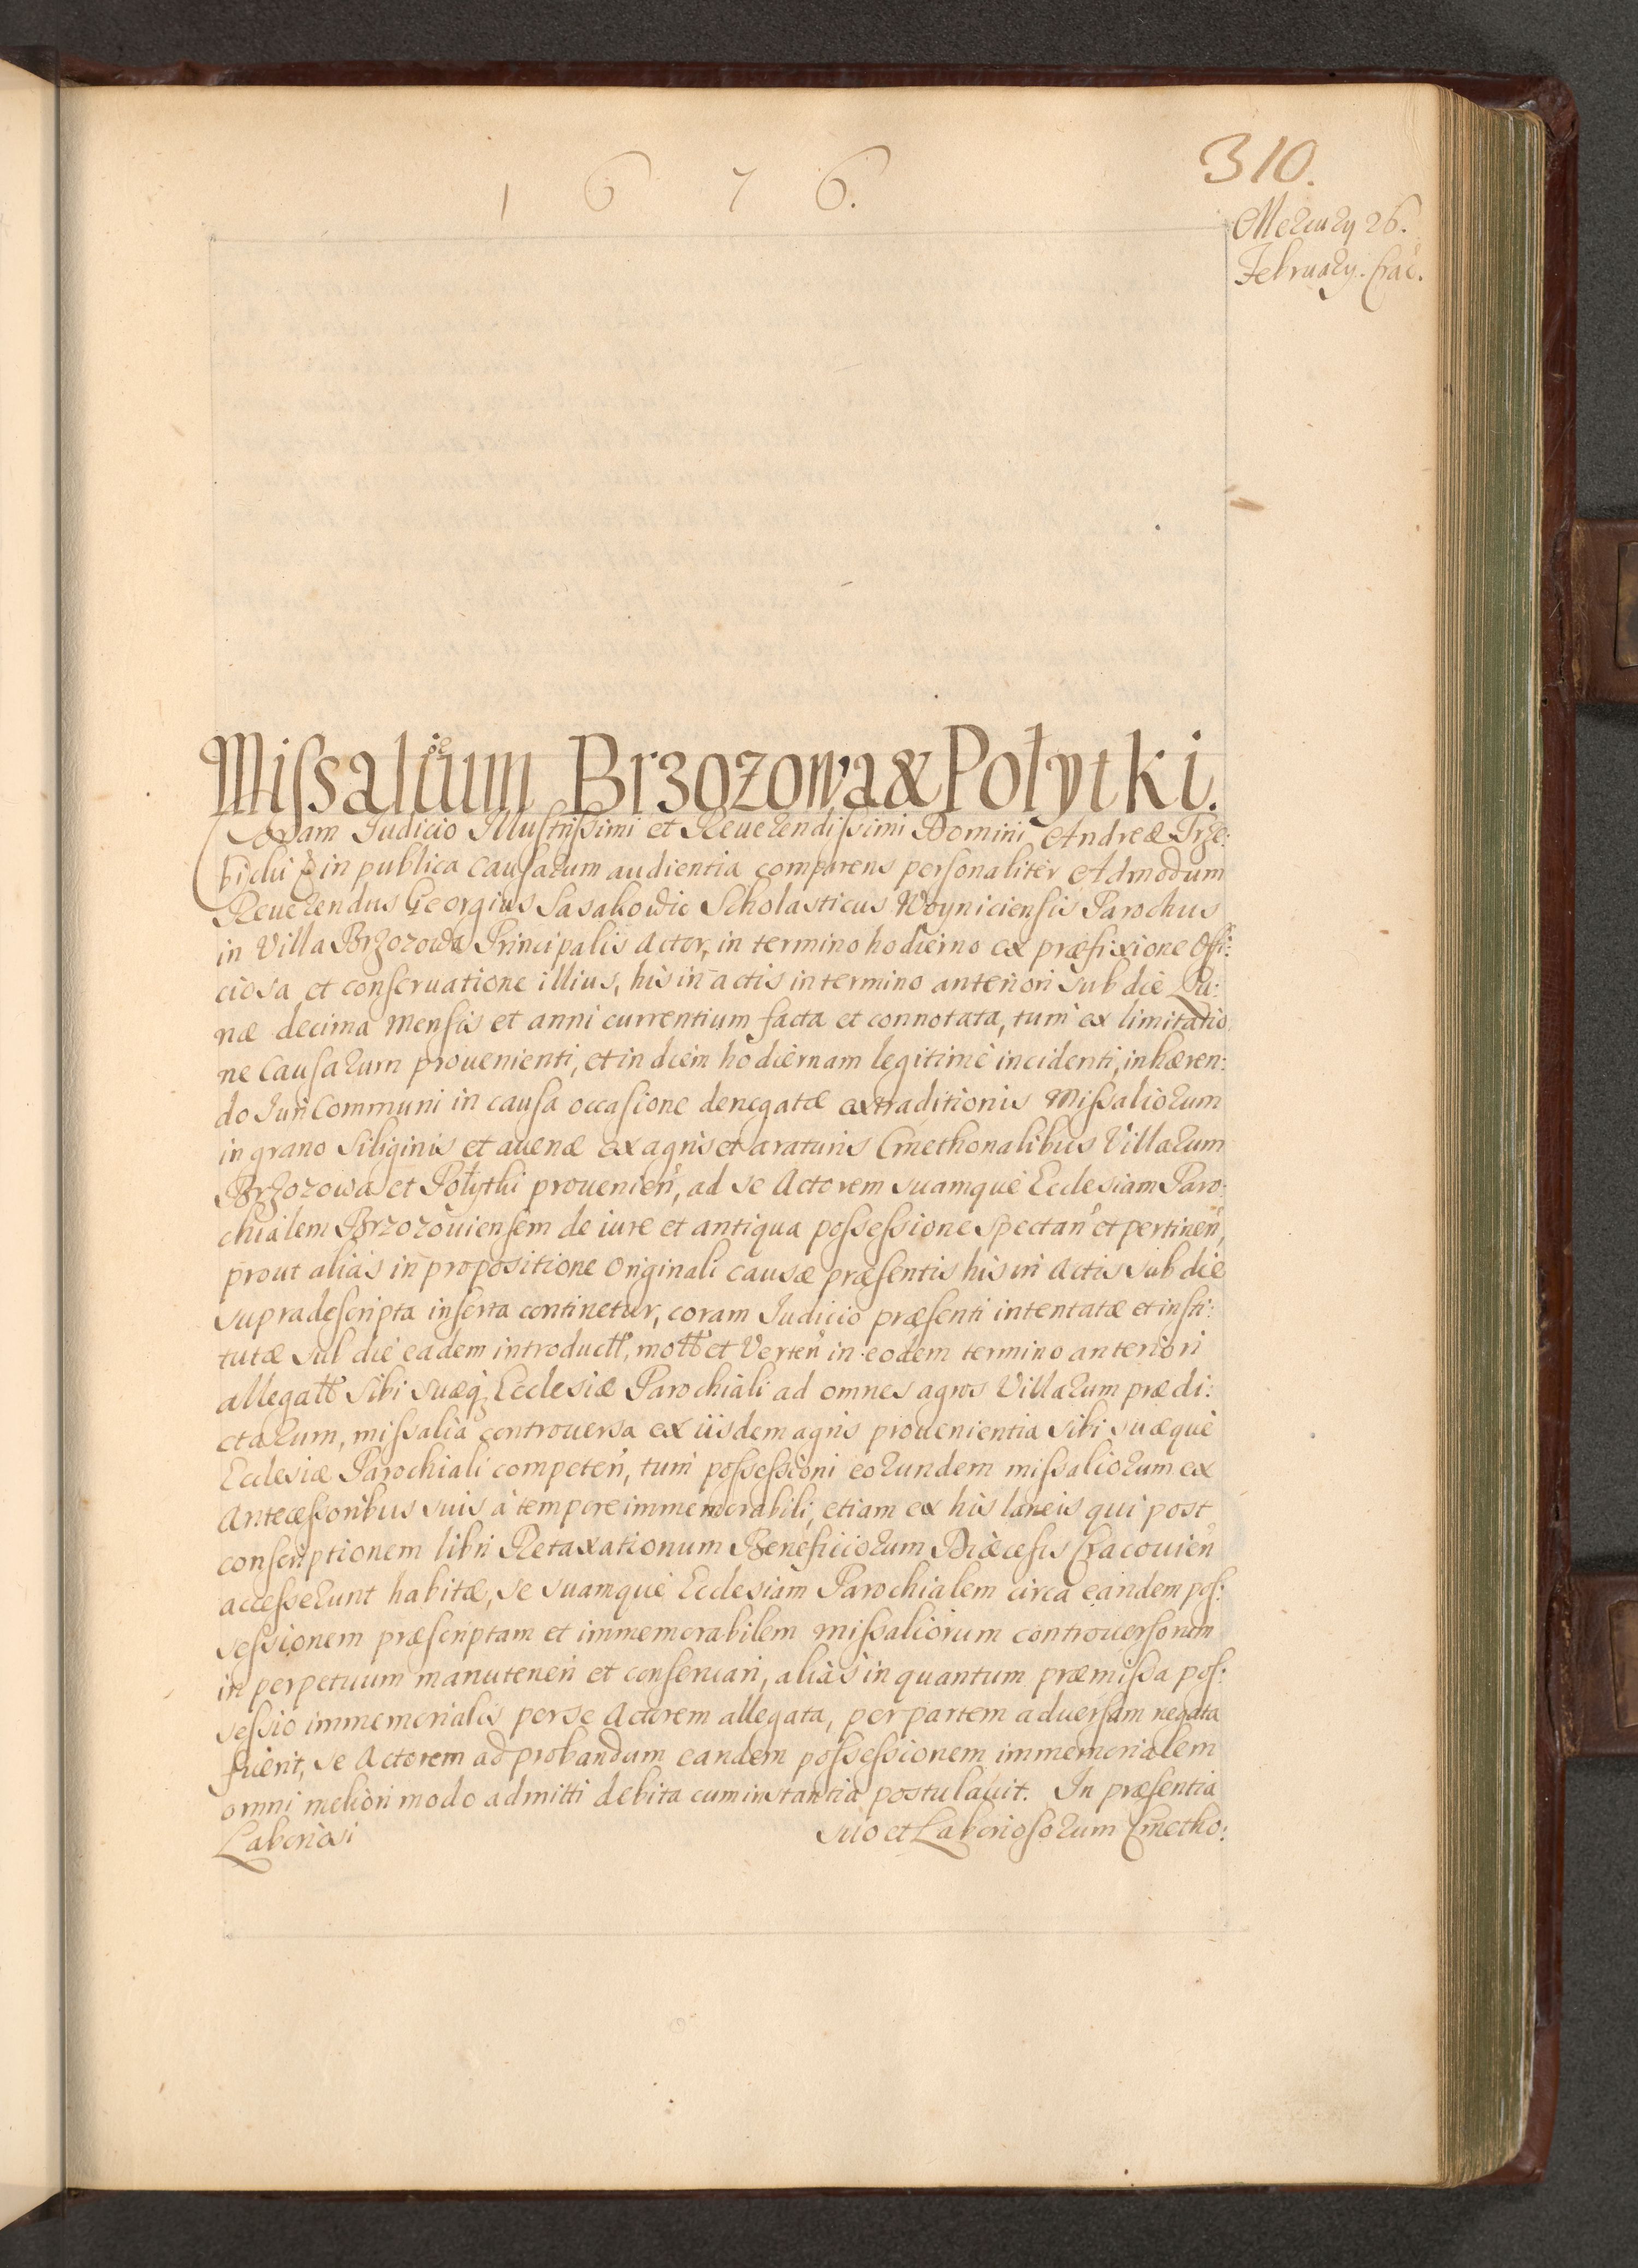 1676.
310.
Mercury 26.
February. Crac.
Missaliorum Brzozowa & Połytki.
Coram Judicio Illustrissimi et Reuerendissimi Domini Andreæ Trze:
bicki in publica Causarum audientia comparens personaliter Admodum
Reuerendus Georgius Sasakowic Scholasticus Woyniciensis Parochus
in Villa Brzozowa Principalis Actor, in termino hodierno ex præfixione Offi:
ciosa et conseruatione illius, his in actis in termino anteriori sub die Lu:
næ decima mensis et anni currentium facta et connotata, tum ex limitatio
ne Causarum prouenienti, et in diem hodiernam legitimè incidenti, inhæren:
do Juri Communi in causa occasione denegatæ extraditionis Missaliorum
in grano Siliginis et auenæ ex agris et araturis Cmethonalibus Villarum
Brzozowa et Połytki prouenien, ad se Actorem suamquè Ecclesiam Paro:
chialem Brzozouiensem de iure et antiqua possessione spectan et pertinen,
prout aliàs in propositione Originali causæ præsentis his in Actis sub die
supradescripta inserta continetur, coram Judicio præsenti intentatæ et insti:
tutæ sub die eadem introductæ, motæ et Verten in eodem termino anteriori
allegatæ sibi suæq; Ecclesiæ Parochiali ad omnes agros Villarum prædi:
ctarum, missalia controuersa ex iisdem agris prouenientia sibi suæquè
Ecclesiæ Parochiali competen, tum possessioni eorundem missaliorum ex
Antecessoribus suis à tempore immemorabili, etiam ex his laneis qui post
conscriptionem libri Retaxationum Beneficiorum Diæcesis Cracouien
accesserunt habitæ, se suamquè Ecclesiam Parochialem circa eandem pos:
sessionem præscriptam et immemorabilem missaliorum controuersorum
in perpetuum manuteneri et conseruari, aliàs in quantum præmissa pos:
sessio immemorialis per se Actorem allegata, per partem aduersam negata
fuerit, se Actorem ad probandum eandem possessionem immemorialem
omni meliori modo admitti debita cum instantia postulauit. In præsentia
Laboriosi suo et Laboriosorum Cmetho: